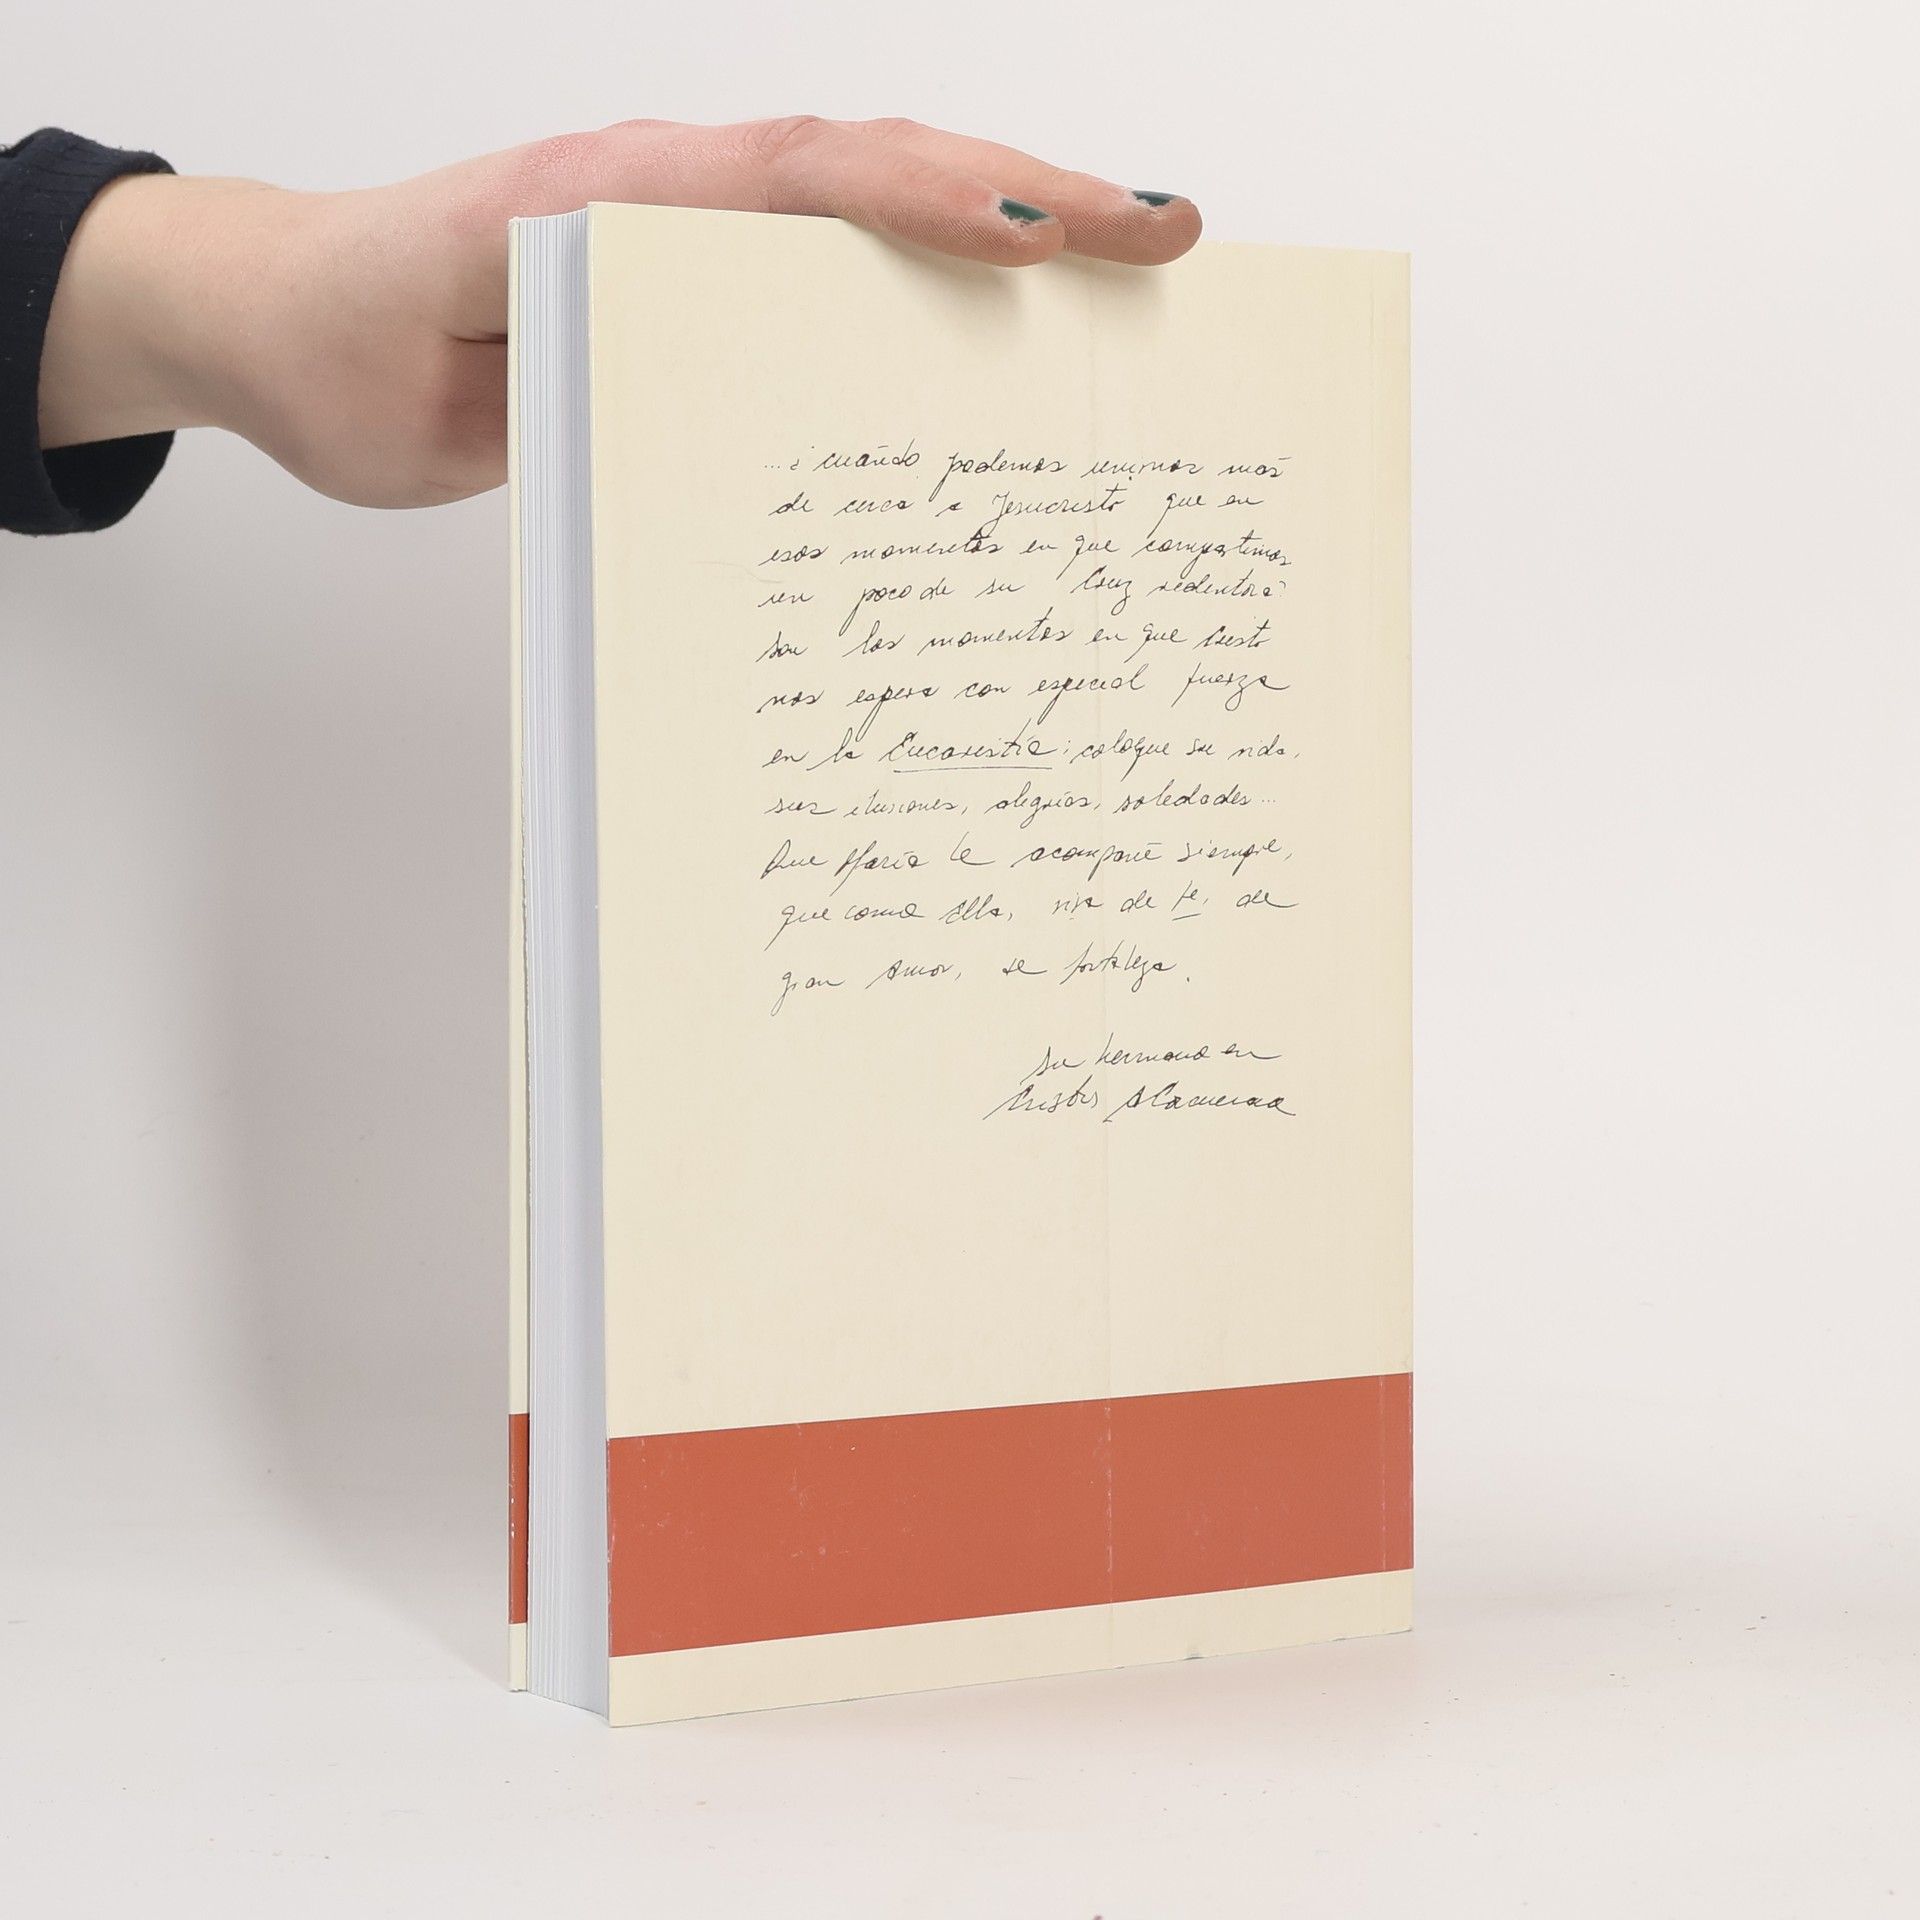 ...¿cuándo podemos unirnos más
de cerca a Jesucristo que en
esos momentos en que compartimos
un poco de su Cruz redentora?
Son los momentos en que Cristo
nos espera con especial fuerza
en la Eucaristía; coloque su vida,
sus ilusiones, alegrías, soledades...
Que María le acompañe siempre,
que como Ella, viva de fe, de
gran Amor, se fortalezca.
Su hermana en
Cristo,